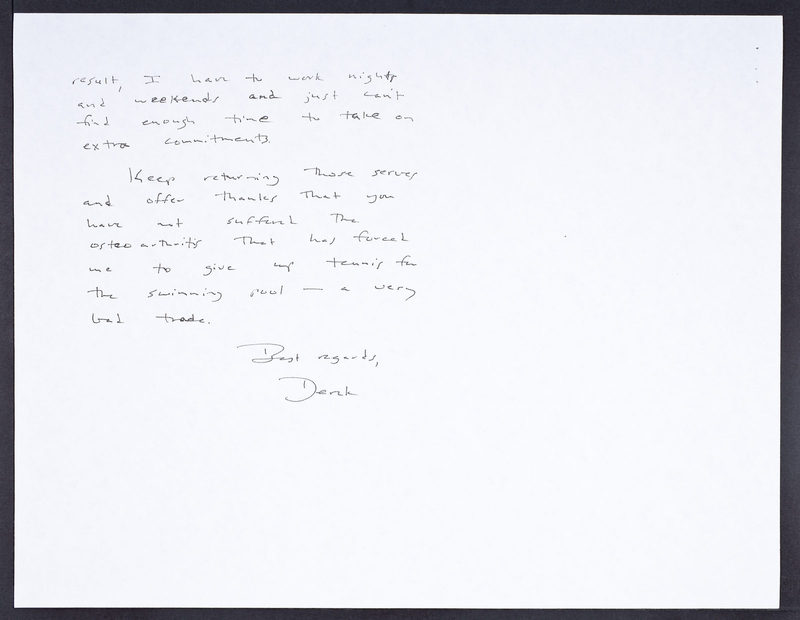 result, I have to work nights
and weekends and just can't
find enough time to take on
extra commitments.
Keep returning those serves
and offer thanks that you
have not suffered the
osteoarthritis that has forced
me to give up tennis for
the swimming pool — a very
bad trade.
Best regards,
Derek